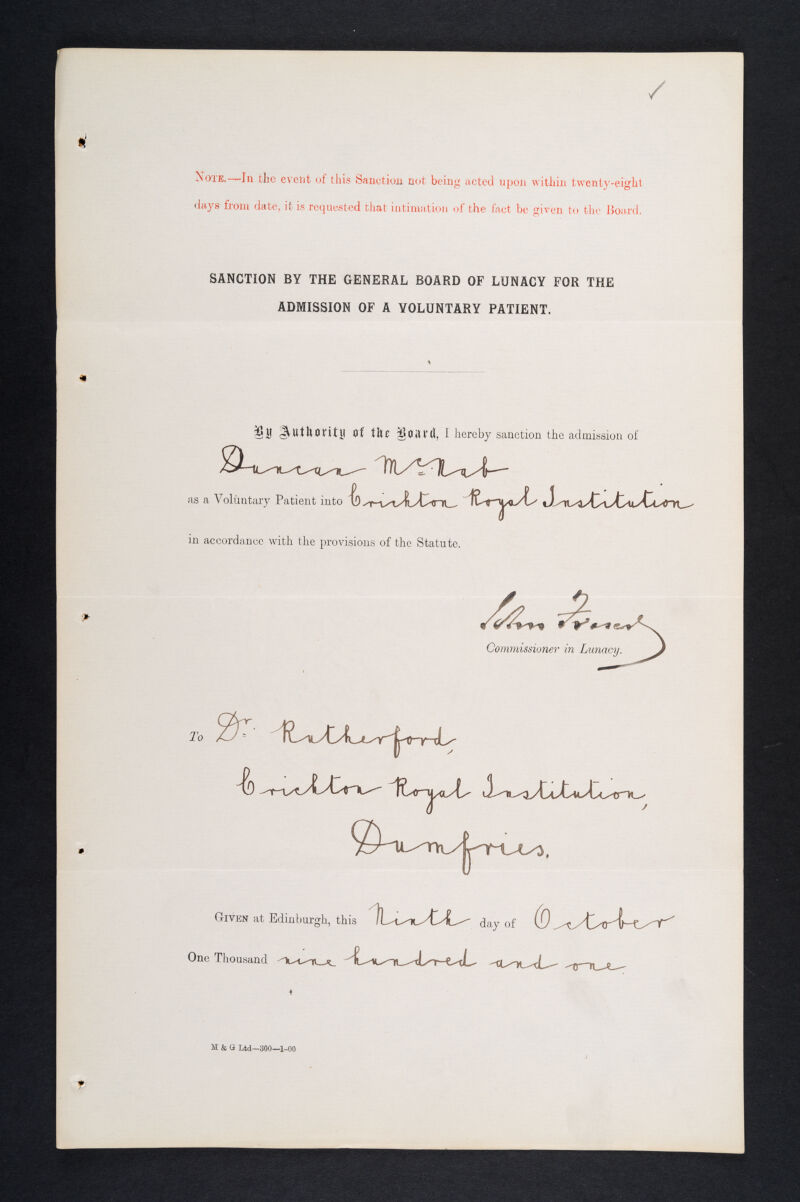 ✓
NOTE.—In the event of this Sanction not being acted upon within twenty-eight
days from date, it is requested that intimation of the fact be given to the Board.
SANCTION BY THE GENERAL BOARD OF LUNACY FOR THE
ADMISSION OF A VOLUNTARY PATIENT.
By Authority of the Board, I hereby sanction the admission of
Duncan McNab
as a Voluntary Patient into Crichton Royal Institution
in accordance with the provisions of the Statute.
John Fraser
Commissioner in Lunacy.
To Dr. Rutherford,
Crichton Royal Institution,
Dumfries.
GIVEN at Edinburgh, this Ninth day of October
One Thousand nine hundred and one
M & G Ltd—300—1-00